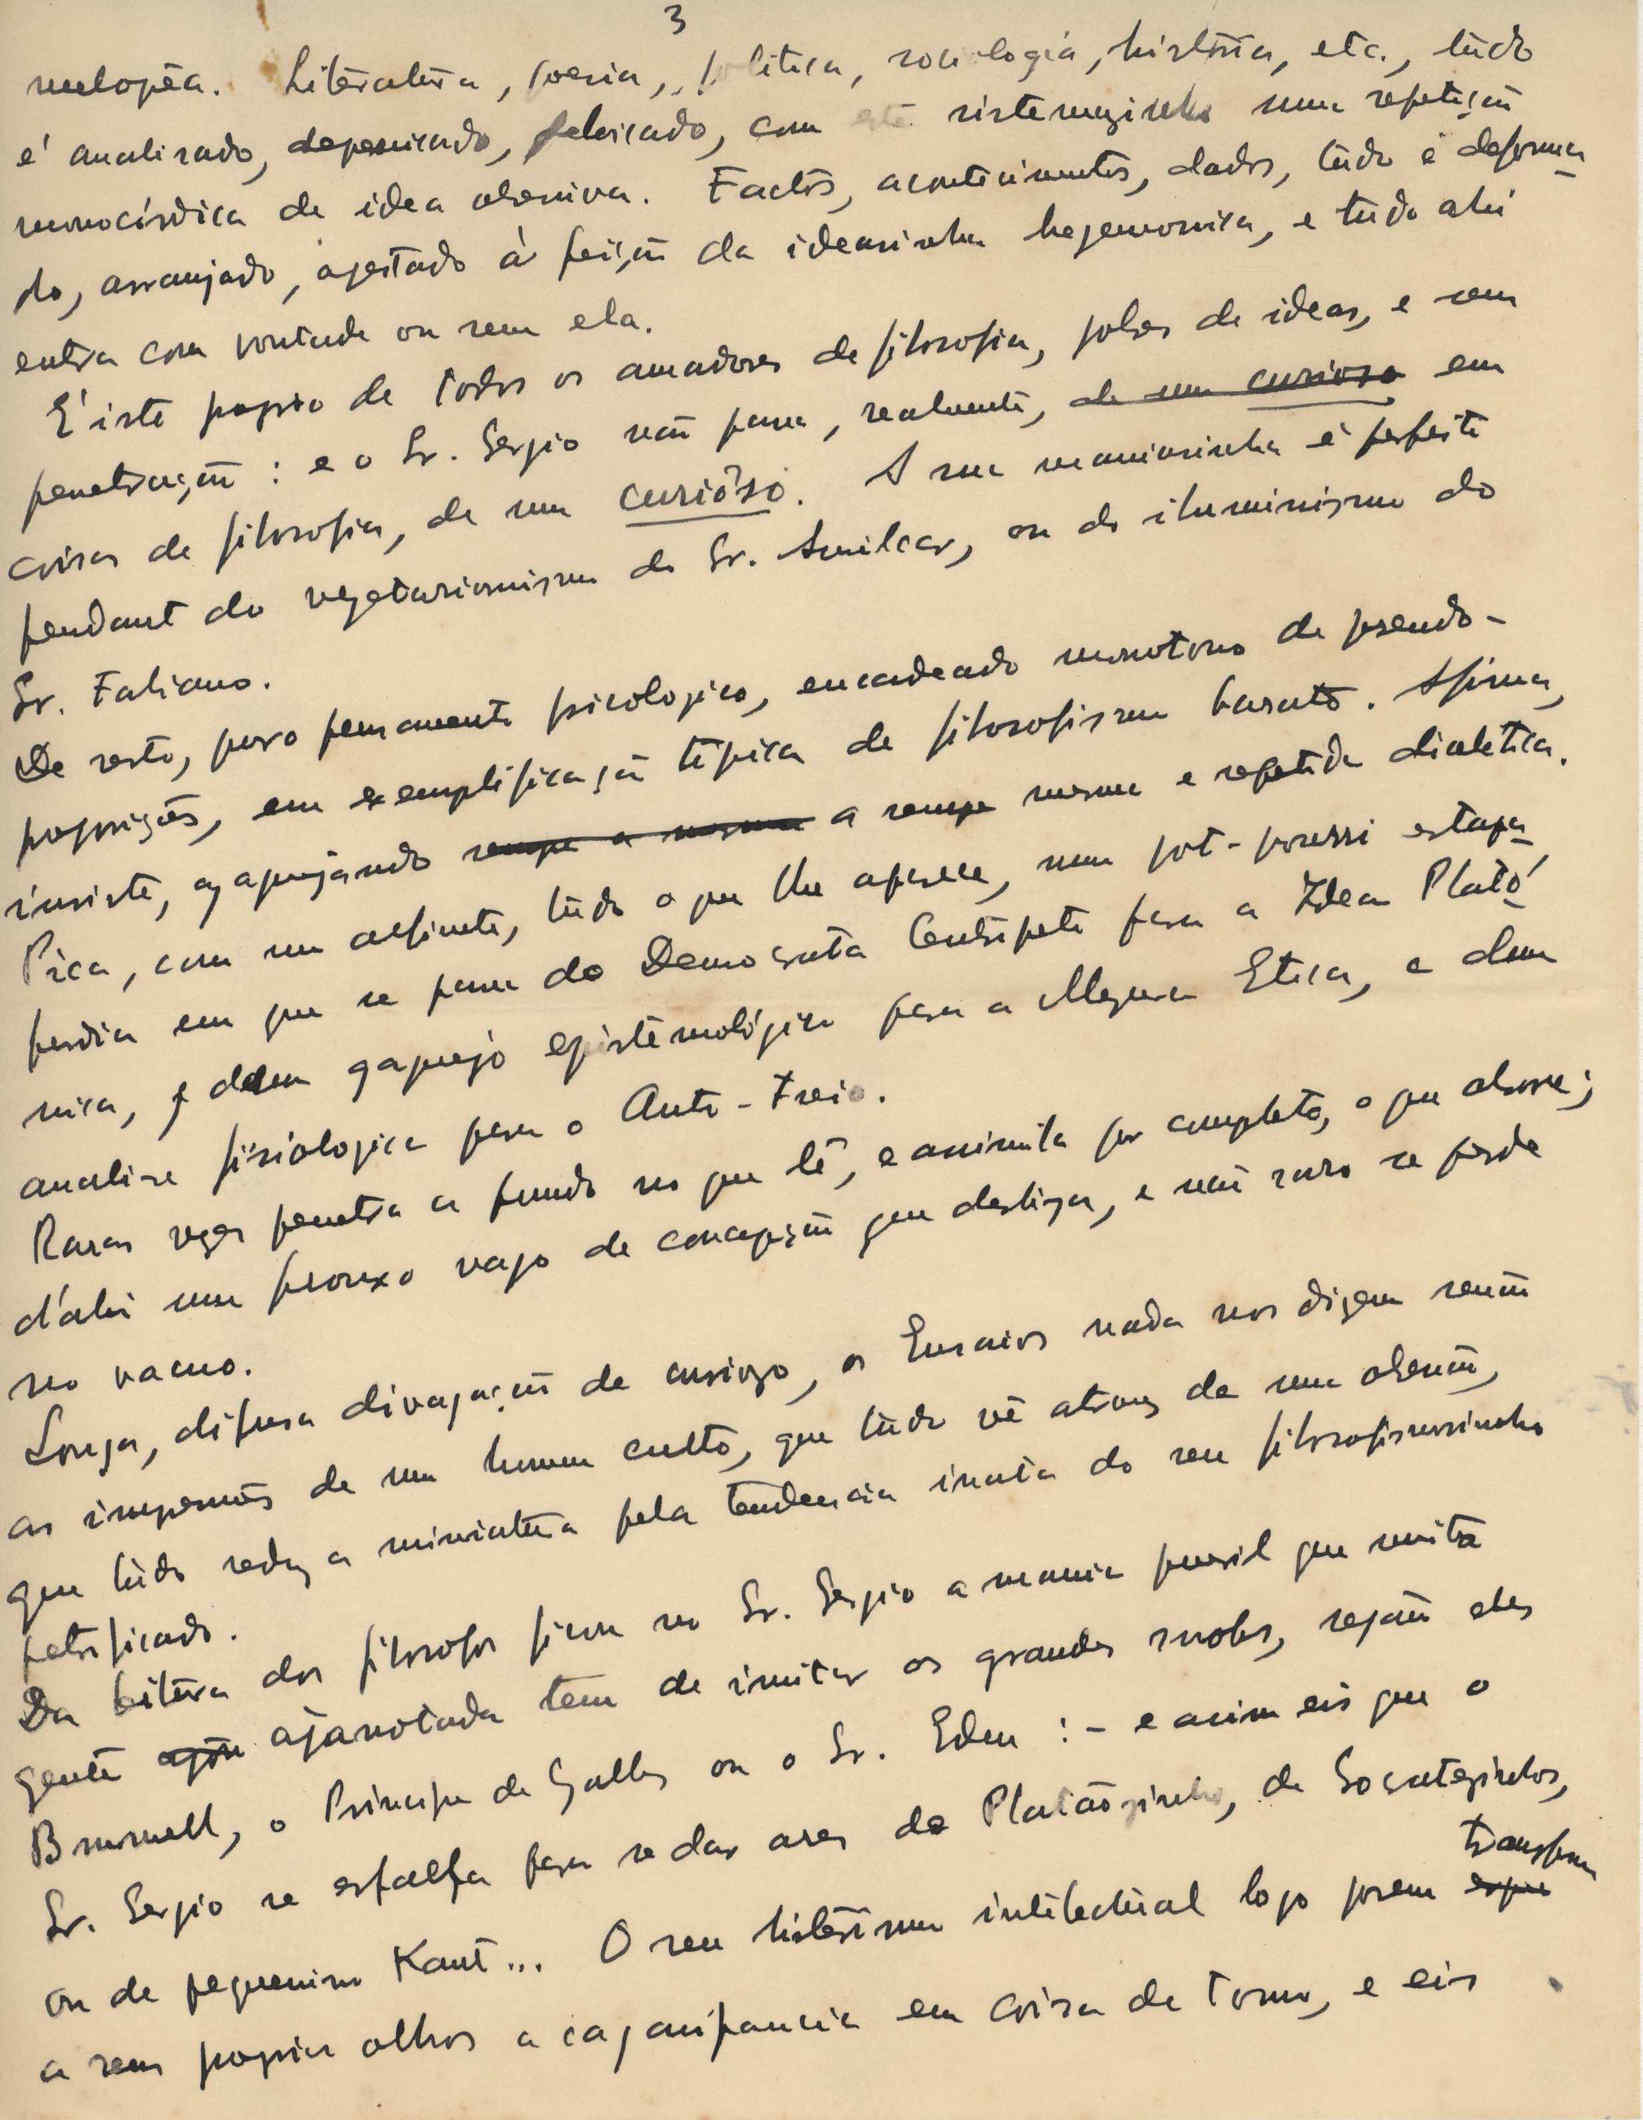 3
melopêa. Literatura, poesia, politica, sociologia, história, etc., tudo
é analisado, depenicado, debicado, com este sistemazinho numa repetição
monocórdica de idea obsessiva. Factos, acontecimentos, dados, tudo é deforma-
do, arranjado, ageitado à feição da ideasinha hegemonica, e tudo ahi
entra com vontade ou sem ela.
É isto proprio de todos os amadores de filosofia, pobres de ideas, e sem
penetração: e o Sr. Sergio não passa, realmente, de um curioso em
coisas de filosofia, de um curioso. A sua maniasinha é perfeito
pendant do vegetarianismo do Sr. Amilcar, ou do iluminismo do
Sr. Fabiano.
De resto, puro pensamento psicologico, encadeado monotono de pseudo-
proposições, em exemplificação típica de filosofismo barato. Afirma,
insiste, gaguejando sempre a mesma a sempre mesma e repetida dialetica.
Pica, com um alfinete, tudo o que lhe aparece, num pot-pourri estapa-
furdia em que se passa do Democrata Centrípeto para a Idea Plató-
nica, e dum gaguejo epistemológico para a Magna Etica, e duma
analise fisiologica para o Anti-Freio.
Raras vezes penetra a fundo no que lê, e assimila por completo, o que absorve;
d'ahi um frouxo vago de concepção que desliza, e não raro se perde
no vacuo.
Longa, difusa divagação de curioso, os Ensaios nada nos dizem senão
as impressões de um homem culto, que tudo vê atravez de uma obsessão,
que tudo reduz a miniatura pela tendencia inata do seu filosofismosinho
petrificado.
Da leitura dos filosofos ficou no Sr. Sergio a mania pueril que muita
gente ajanotada tem de imitar os grandes snobs, sejam eles
Brummell, o Principe de Galles ou o Sr. Eden: – e assim eis que o
Sr. Sergio se esfalfa para se dar ares de Platãozinho, de Socratezinhos,
ou de pequenino Kant... O seu histerismo intelectual logo porem transforma
a seus proprios olhos a caganifancia em coisa de tomo, e eis